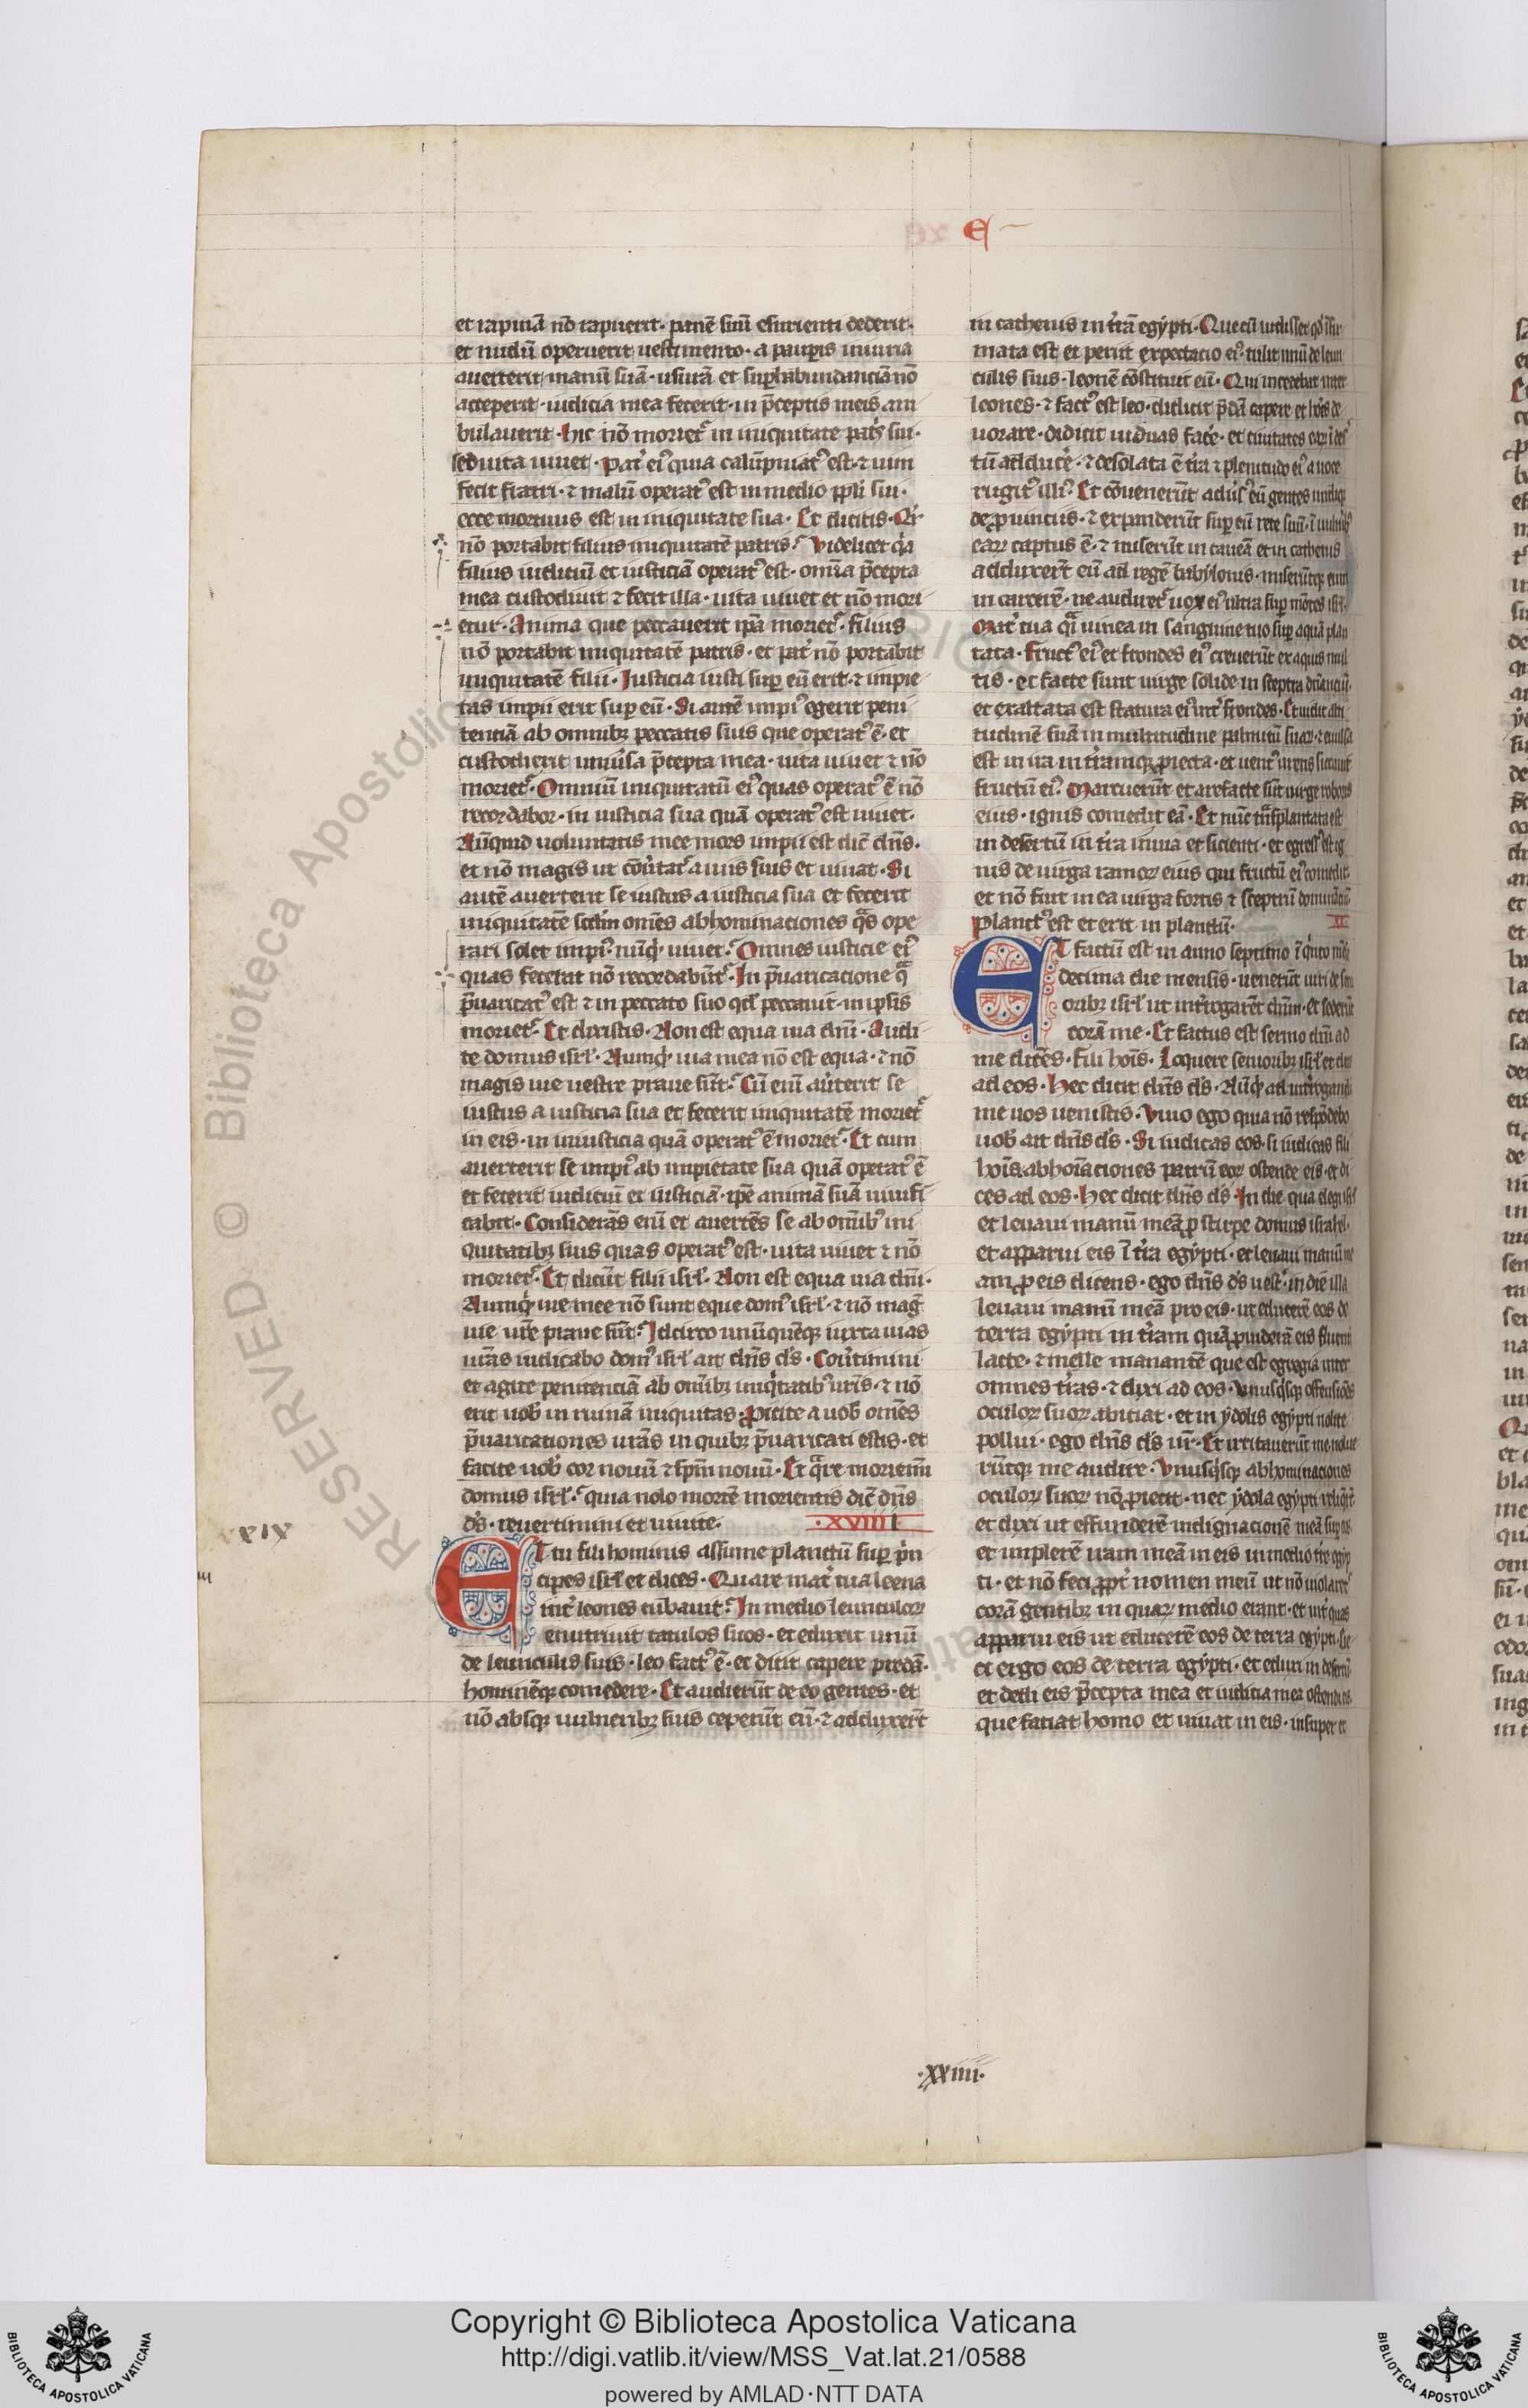 E
et rapinā nō rapuerit· panē suū esurienti dederit·
et nudū operuerit uestimento· a pauperis iniuria
auerterit manū suā· usurā et suphabundanciā nō
acceperit· iudicia mea fecerit· in p̄ceptis meis am
bulauerit· hic nō moriet᷑ in iniquitate pat᷑s sui·
sed uita uiuet· Pat᷑ eiꝰ quia calūpniatꝰ est· ⁊ uim
fecit fratri· ⁊ malū operatꝰ est in medio ppli sui·
ecce mortuus est in iniquitate sua· Et dicitis· Qr̄
nō portabit filius iniquitatē patris? Videlicet q̄a
filius iudiciū et iusticiā operatꝰ est· om̄ia p̄cepta
mea custodiuit ⁊ fecit illa· uita uiuet et nō mori
etur· Anima que peccauerit ip̄a moriet᷑· filius
nō portabit iniquitatē patris· et pat᷑ nō portabit
iniquitatē filii· Iusticia iusti sup eū erit· ⁊ impie
tas impii erit sup eū· Si autē impiꝰ egerit peni
tentiā ab omnibꝫ peccatis suis que operatꝰ ē· et
custodierit uniūsa p̄cepta mea· uita uiuet ⁊ nō
moriet᷑· Omniū iniquitatū eiꝰ quas operatꝰ ē nō
recordabor· in iusticia sua quā operatꝰ est uiuet·
Nūquid uoluntatis mee mors impii est dic̄ dn̄s·
et nō magis ut cōūtat᷑ a uiis suis et uiuat· Si
autē auerterit se iustus a iusticia sua et fecerit
iniquitatē scd̄m omēs abhominaciones q̄s ope
rari solet impiꝰ· nūq̇ uiuet? Omnes iusticie eiꝰ
quas fecerat nō recordabūt᷑· In p̄uaricacione q̄
p̄uaricatꝰ est ⁊ in peccato suo qd̄ peccauit· in ipsis
moriet᷑· Et dixistis· Non est equa uia dn̄i· Audi
te domus isrl̄· Nunq̇ uia mea nō est equa· ⁊ nō
magis uie uestre praue sūt? Cū enī aūterit se
iustus a iusticia sua et fecerit iniquitatē moriet᷑
in eis· in iniusticia quā operatꝰ ē moriet᷑· Et cum
auerterit se impiꝰ ab impietate sua quā operatꝰ ē
et fecerit iudiciū et iusticiā· ip̄e animā suā uiuifi
cabit· Considerās enī et auertēs se ab om̄ibꝰ ini
quitatibꝫ suis quas operatꝰ est· uita uiuet ⁊ nō
moriet᷑· Et dicūt filii isrl̄· Non est equa uia dn̄i·
Nunq̇ uie mee nō sunt eque domꝰ isrl̄· ⁊ nō mag̅
uie ur̄e praue sūt? Idcirco unūquēqꝫ iuxta uias
ur̄as iudicabo domꝰ isrl̄ ait dn̄s ds̄· Cōūtimini
et agite penitenciā ab om̄ibꝫ iniq̇tatibꝰ ur̄is· ⁊ nō
erit uob̄ in ruinā iniquitas· ꝓicite a uob̄ omēs
p̄uaricationes ur̄as in quibꝫ p̄uaricati estis· et
facite uob̄ cor nouū ⁊ sp̄m nouū· Et q̄re moriemī
domus isrl̄? quia nolo mortē morientis dic̄ dn̄s
ds̄· reuertimini et uiuite· ·XVIIII
xix
ET tu fili hominis assume planctū sup p̄n
cipes isrl̄ et dices· Quare mat᷑ tua leena
int᷑ leones cubauit? In medio leunculoꝝ
enutriuit catulos suos· et eduxit unū
de leunculis suis· leo factꝰ ē· et dicit capere predā·
hominēqꝫ comedere· Et audierūt de eo gentes· et
nō absqꝫ uulneribꝫ suis ceperūt eū· ⁊ adduxerūt
in cathenis in t᷑rā egypti· Que cū uidisset qd̄ īfir
mata est et periit expectacio eiꝰ· tulit unū de leun
culis suis· leonē cōstituit eū· Qui incedebat inter
leones· ⁊ factꝰ est leo· didicit p̄dā capere et hoīs de
uorare· didicit uiduas fac᷑e· et ciuitates eaꝝ ī des᷑
tū adduc᷑e· ⁊ desolata ē t᷑ra ⁊ plenitudo eiꝰ a uoce
rugitꝰ illiꝰ· Et cōuenerūt adūsꝰ eū gentes undiqꝫ
de ꝓuinciis· ⁊ expanderūt sup eū rete suū· ī uulnibꝫ
eaꝝ captus ē· ⁊ miserūt in caueā et in cathenis
adduxerūt eū ad regē babylonis· miserūtqꝫ eum
in carcerē· ne audiret᷑ uox eiꝰ ultra sup mōtes isrl̄·
Mat᷑ tua q̄i uinea in sanguine tuo sup aquā plan
tata· fructꝰ eiꝰ et frondes eiꝰ creuerūt ex aquis mul
tis· et facte sunt uirge solide in sceptra dn̄anciū·
et exaltata est statura eiꝰ int᷑ frondes· Et uidit alti
tudinē suā in multitudine palmitū suoꝝ· ⁊ euulsa
est in ira in t᷑ramqꝫ ꝓiecta· et uentꝰ urens siccauit
fructū eiꝰ· Marcuerūt et arefacte sūt uirge roboris
eius· ignis comedit eā· Et nūc trāsplantata est
in desertū in t᷑ra inuia et sicienti· et egressꝰ est ig
nis de uirga ramoꝝ eius qui fructū eiꝰ comedit·
et nō fuit in ea uirga fortis ⁊ sceptrū dominanciū·
Planctꝰ est et erit in planctū· XX
ET factū est in anno septimo ī q̇nto mēse
decima die mensis· uenerūt uiri de seni
oribꝫ isrl̄ ut int᷑rogarēt dn̄m· et sederūt
corā me· Et factus est sermo dn̄i ad
me dicēs· fili hoīs· Loquere senioribꝫ isrl̄ et dices
ad eos· Hec dicit dn̄s ds̄· Nūq̇ ad int᷑rogandū
me uos uenistis· Viuo ego quia nō respōdebo
uob̄ ait dn̄s ds̄· Si iudicas eos· si iudicas fili
hoīs· abhoīaciones patrū eoꝝ ostende eis· et di
ces ad eos· Hec dicit dn̄s ds̄· In die qua elegi isrl̄
et leuaui manū meā ꝓ stirpe domus israhel·
et apparui eis ī t᷑ra egypti· et leuaui manū me
am ꝓ eis dicens· ego dn̄s ds̄ uest᷑· in die illa
leuaui manū meā pro eis· ut educerē eos de
terra egypti in t᷑ram quā ꝓuiderā eis fluentē
lacte· ⁊ melle manantē que est egregia inter
omnes t᷑ras· ⁊ dixi ad eos· Vnusq̇sqꝫ offensiōes
oculoꝝ suoꝝ abiciat· et in ydolis egypti nolite
pollui· ego dn̄s ds̄ ur̄· Et irritauerūt me nolue
rūtqꝫ me audire· Vnusq̇sqꝫ abhominaciones
oculoꝝ suoꝝ nō ꝓiecit· nec ydola egypti reliq̇rūt
et dixi ut effunderē indignacionē meā sup eos
et implerē iram meā in eis in medio t᷑re egip
ti· et nō feci ꝓpt᷑ nomen meū ut nō uiolaret᷑
corā gentibꝫ in quaꝝ medio erant· et int᷑ quas
apparui eis ut educerē eos de terra egypti· Eie
ci ergo eos de terra egypti· et eduxi in desertū·
et dedi eis p̄cepta mea et iudicia mea ostendi eis
que faciat homo et uiuat in eis· insuper et
·xxiiii·
RESERVED © Biblioteca Apostolica
Copyright © Biblioteca Apostolica Vaticana
http://digi.vatlib.it/view/MSS_Vat.lat.21/0588
powered by AMLAD·NTT DATA
BIBLIOTECA APOSTOLICA VATICANA
BIBLIOTECA APOSTOLICA VATICANA